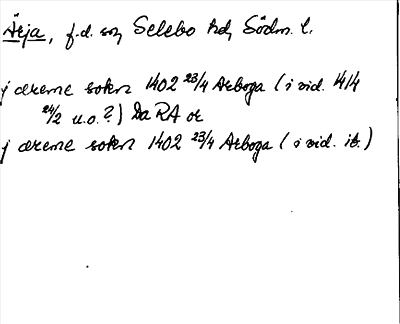 Ärja, f.d. sn, Selebo hd, Södm. l.
j ærene sokn 1402 23/4 Arboga (i vid. 1414
24/2 u.o.?) Da RA or
j ærene sokn 1402 23/4 Arboga (i vid. ib.)